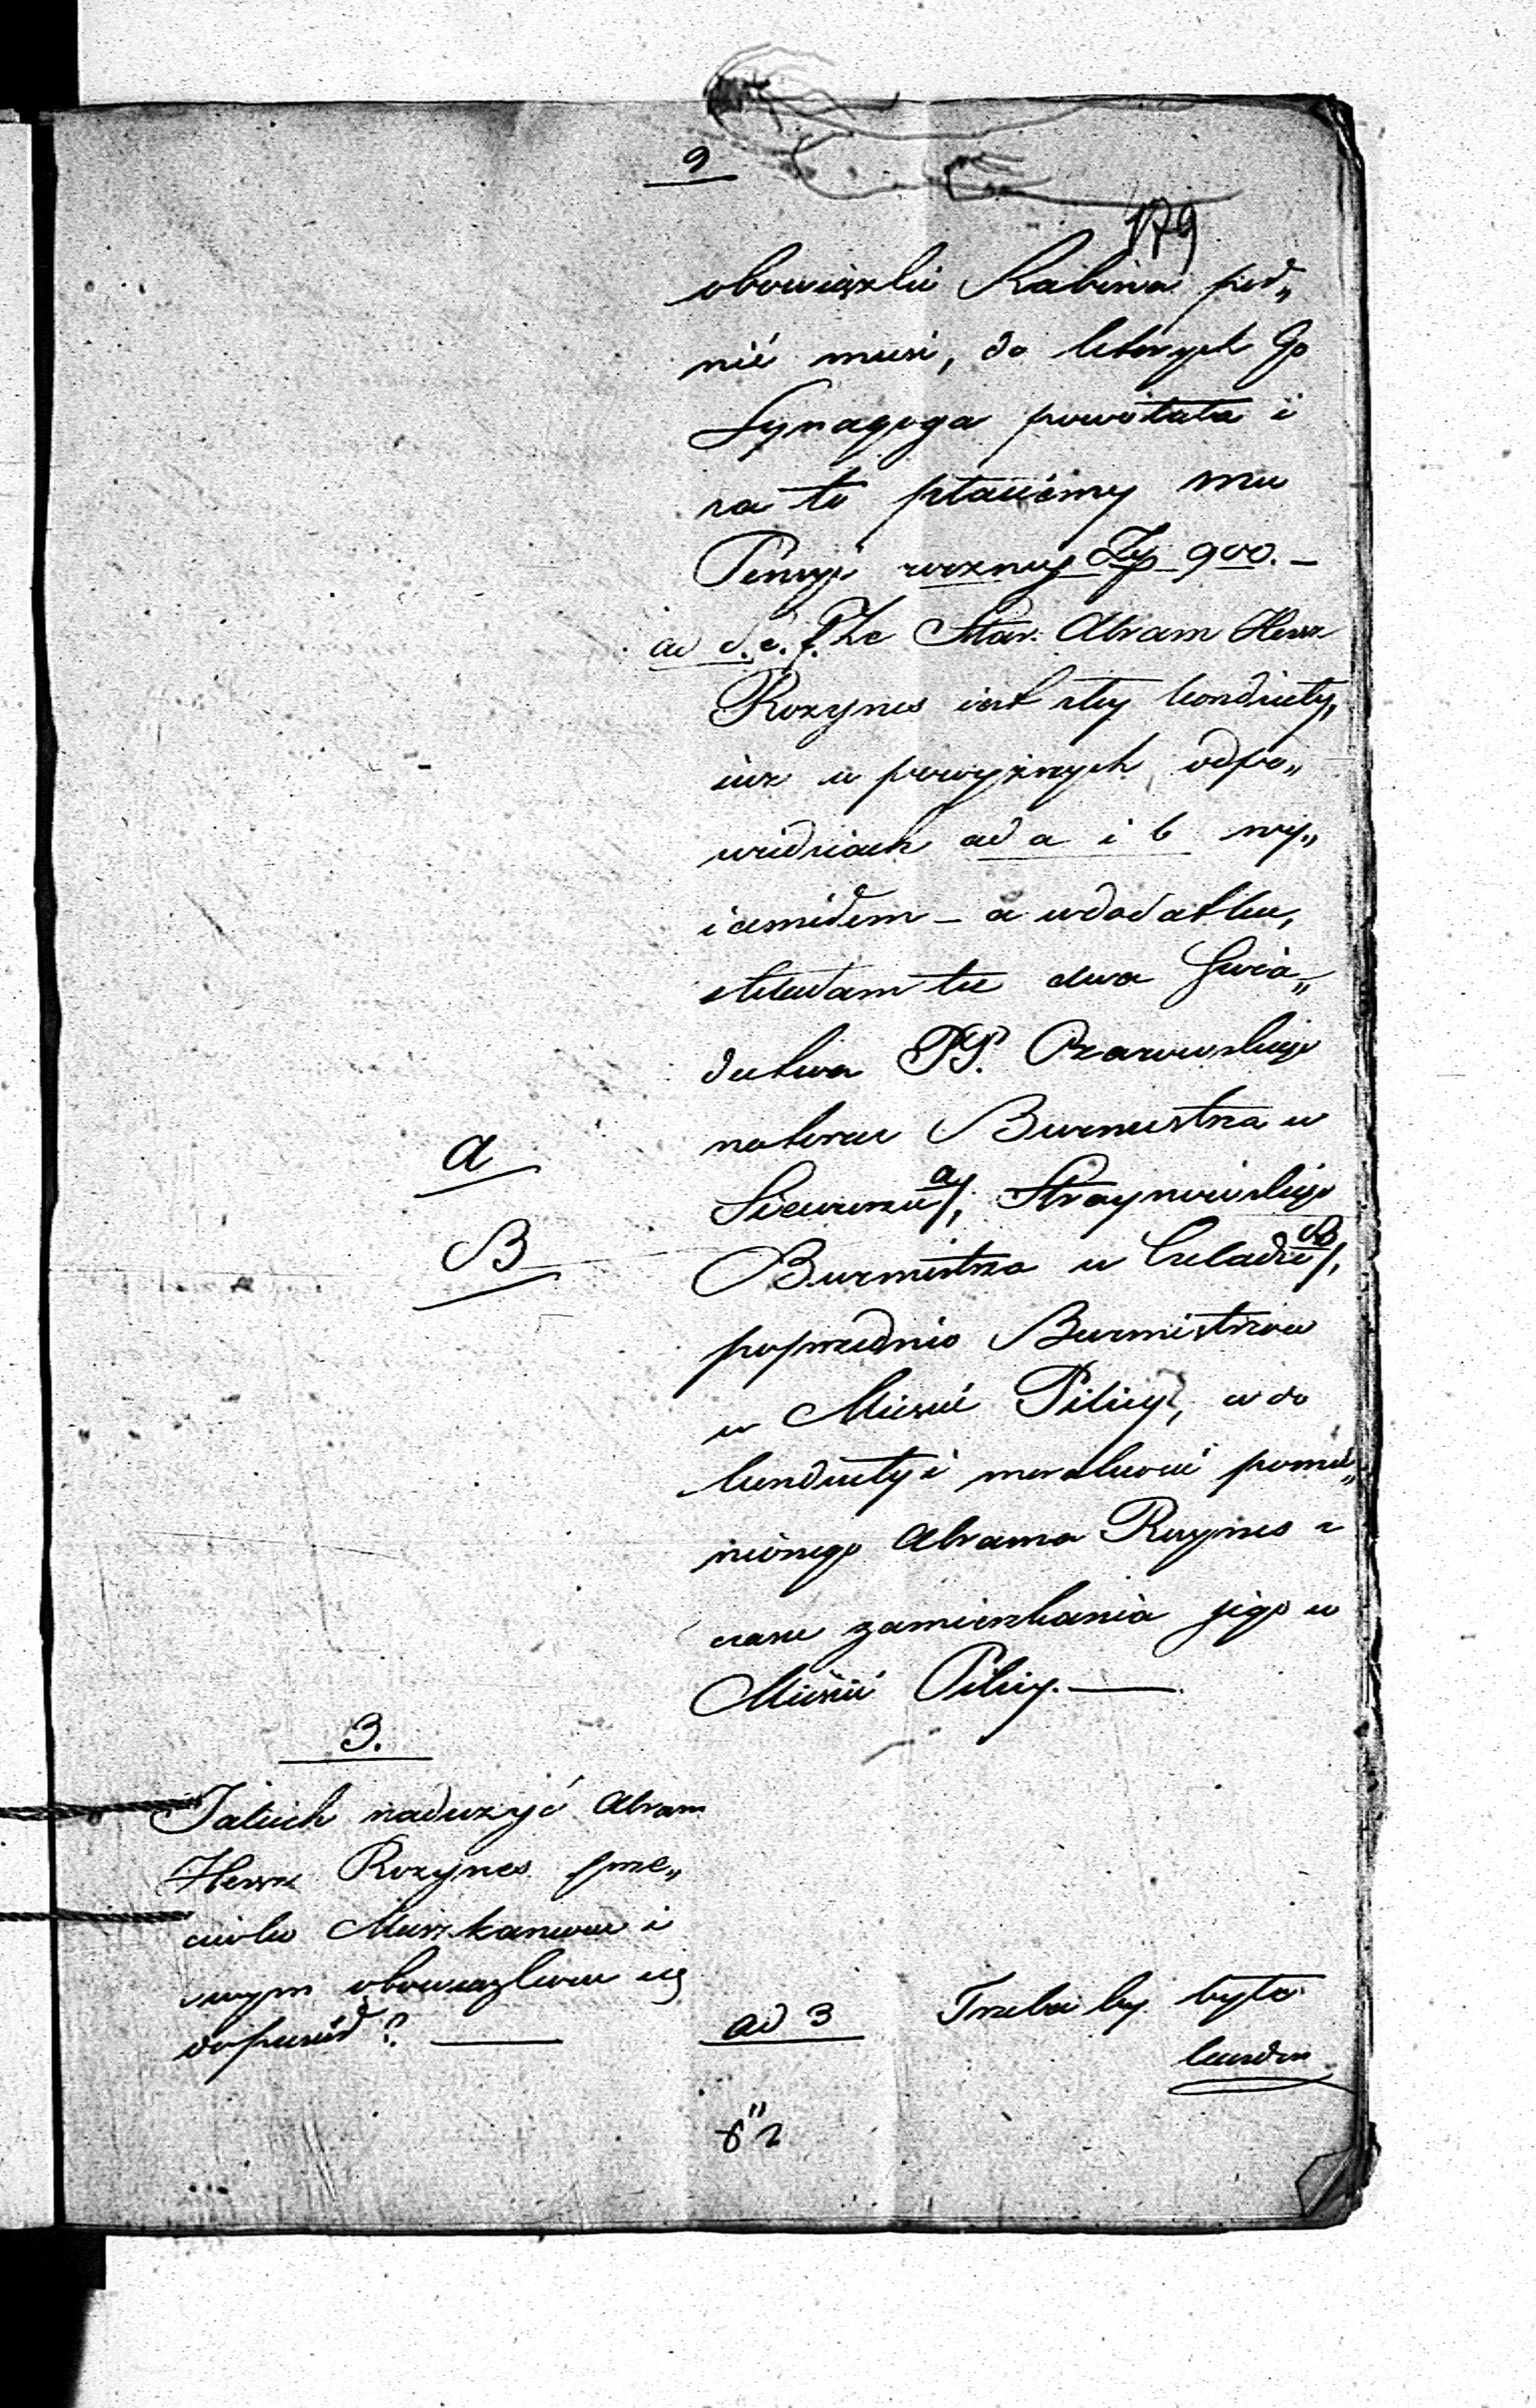 9
179
obowiązki Rabina peł„
nić musi, do których Go
Synagoga powołała i
za to płaciemy mu
Pensyi roczney Złp 900. —
ad d. e. f. Że Star. Abram Hersz
Rozynes iest złey konduity,
iuż w powyżnych odpo„
wiedziach ad a i b wy„
iaśniłem — a w dodatku,
składam tu dwa Świa„
dectwa PP. Ozarowskiego
na teraz Burmistrza w
Siewierzu a/, Straynowskiego
Burmistrza w Czeladzi B/,
poprzednio Burmistrzów
w Mieście Pilicy, co do
konduity i moralności pomie„
nionego Abrama Rozynes z
czasu zamieszkania jego w
Mieście Pilicy. —
a
B
3.
Jakich nadużyć Abram
Hersz Rozynes prze„
ciwko Mieszkańcom i
swym obowiązkom się
dopuścił? —
ad 3 Trzeba by było